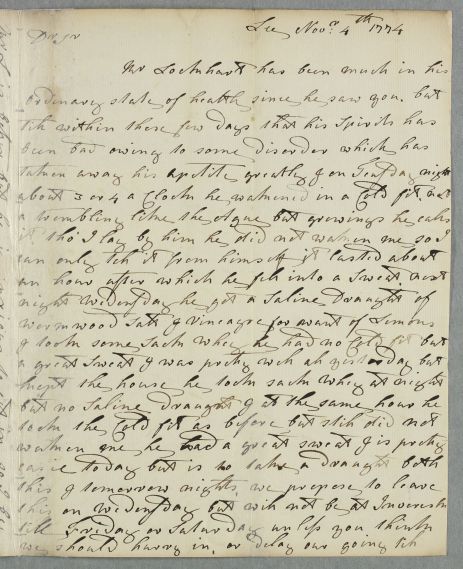 Dr Sr
Lee Novr. 4th 1774
Mr Lockhart has been much in his
ordinary state of health since he saw you. but
till within these few days that his Spirits has
been bad owing to some disorder which has
taken away his apetite greatly & on Teusday night
about 3 or 4 a Clock he wakened in a Cold fit, not
a trembling like the Ague but growings he calls
it tho' I lay by him he did not waken me so I
can only tell it from himself it lasted about
an hour after which he fell into a Sweat next
night Wedensday he got a Saline Draught of
wormwood Salt & Vineagre for want of Limons
& took some Sack Whey he had no Cold fit but
a great Sweat & was pretty well all yesterday but
kept the house he took sack whey at night
but no Saline draught & at the same hour he
took the Cold fit as before but still did not
waken me he had a great sweat & is pretty
easie today but is to take a draught both
this & tomorrow night. we propose to leave
this on Wedensday but will not be at Inveresk
till Friday or Saturday unless you think
we should hurry in, or delay our going till